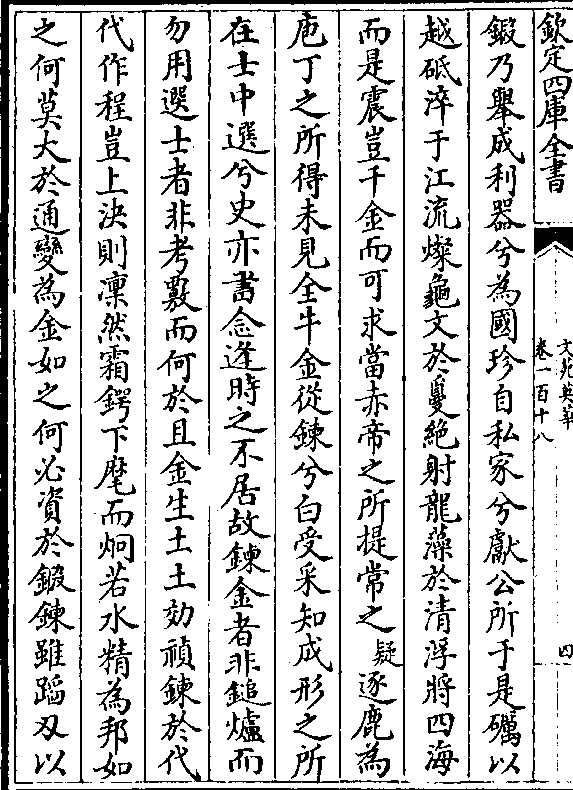 欽定四庫全書
文苑英華
卷一百十八
四
鍜乃舉成利器兮為國珍自私家兮獻公所于是礪以
越砥淬于江流燦龜文於敻絶射龍藻於清浮將四海
而是震豈千金而可求當赤帝之所提常之疑逐鹿為
庖丁之所得未見全牛金從鍊兮白受采知成形之所
在士中選兮史亦書念逢時之不居故鍊金者非鎚爐而
勿用選士者非考覈而何於且金生土土効禎鍊於代
代作程豈上決則凜然霜鍔下麾而炯若水精為邦如
之何莫大於通變為金如之何必資於鍜鍊雖蹈刄以